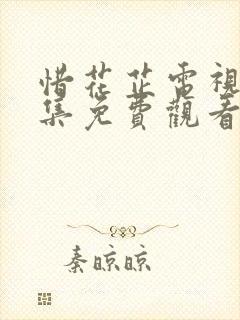 惜花芷電視
集免費觀看
秦晾晾